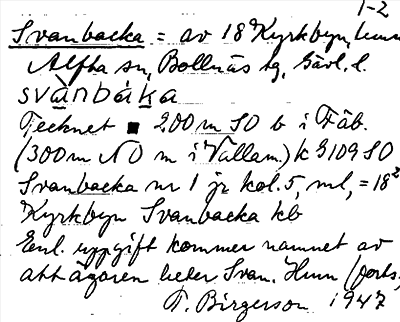 1-2
Svanbacka = av 18² Kyrkbyn,
Alfta sn, Bollnäs tg, Gävl. l.
svànbák̲a
Tecknet ■ 200 m SO b i Fäb.
(300 m NO m i Vallam) k S 109 SO
Svanbacka nr 1 jr kol. 5, ml, = 18²
Kyrkbyn Svanbacka kb
Enl. uppgift kommer namnet av
att ägaren heter Svan. Hum (forts.
T. Birgerson 1947